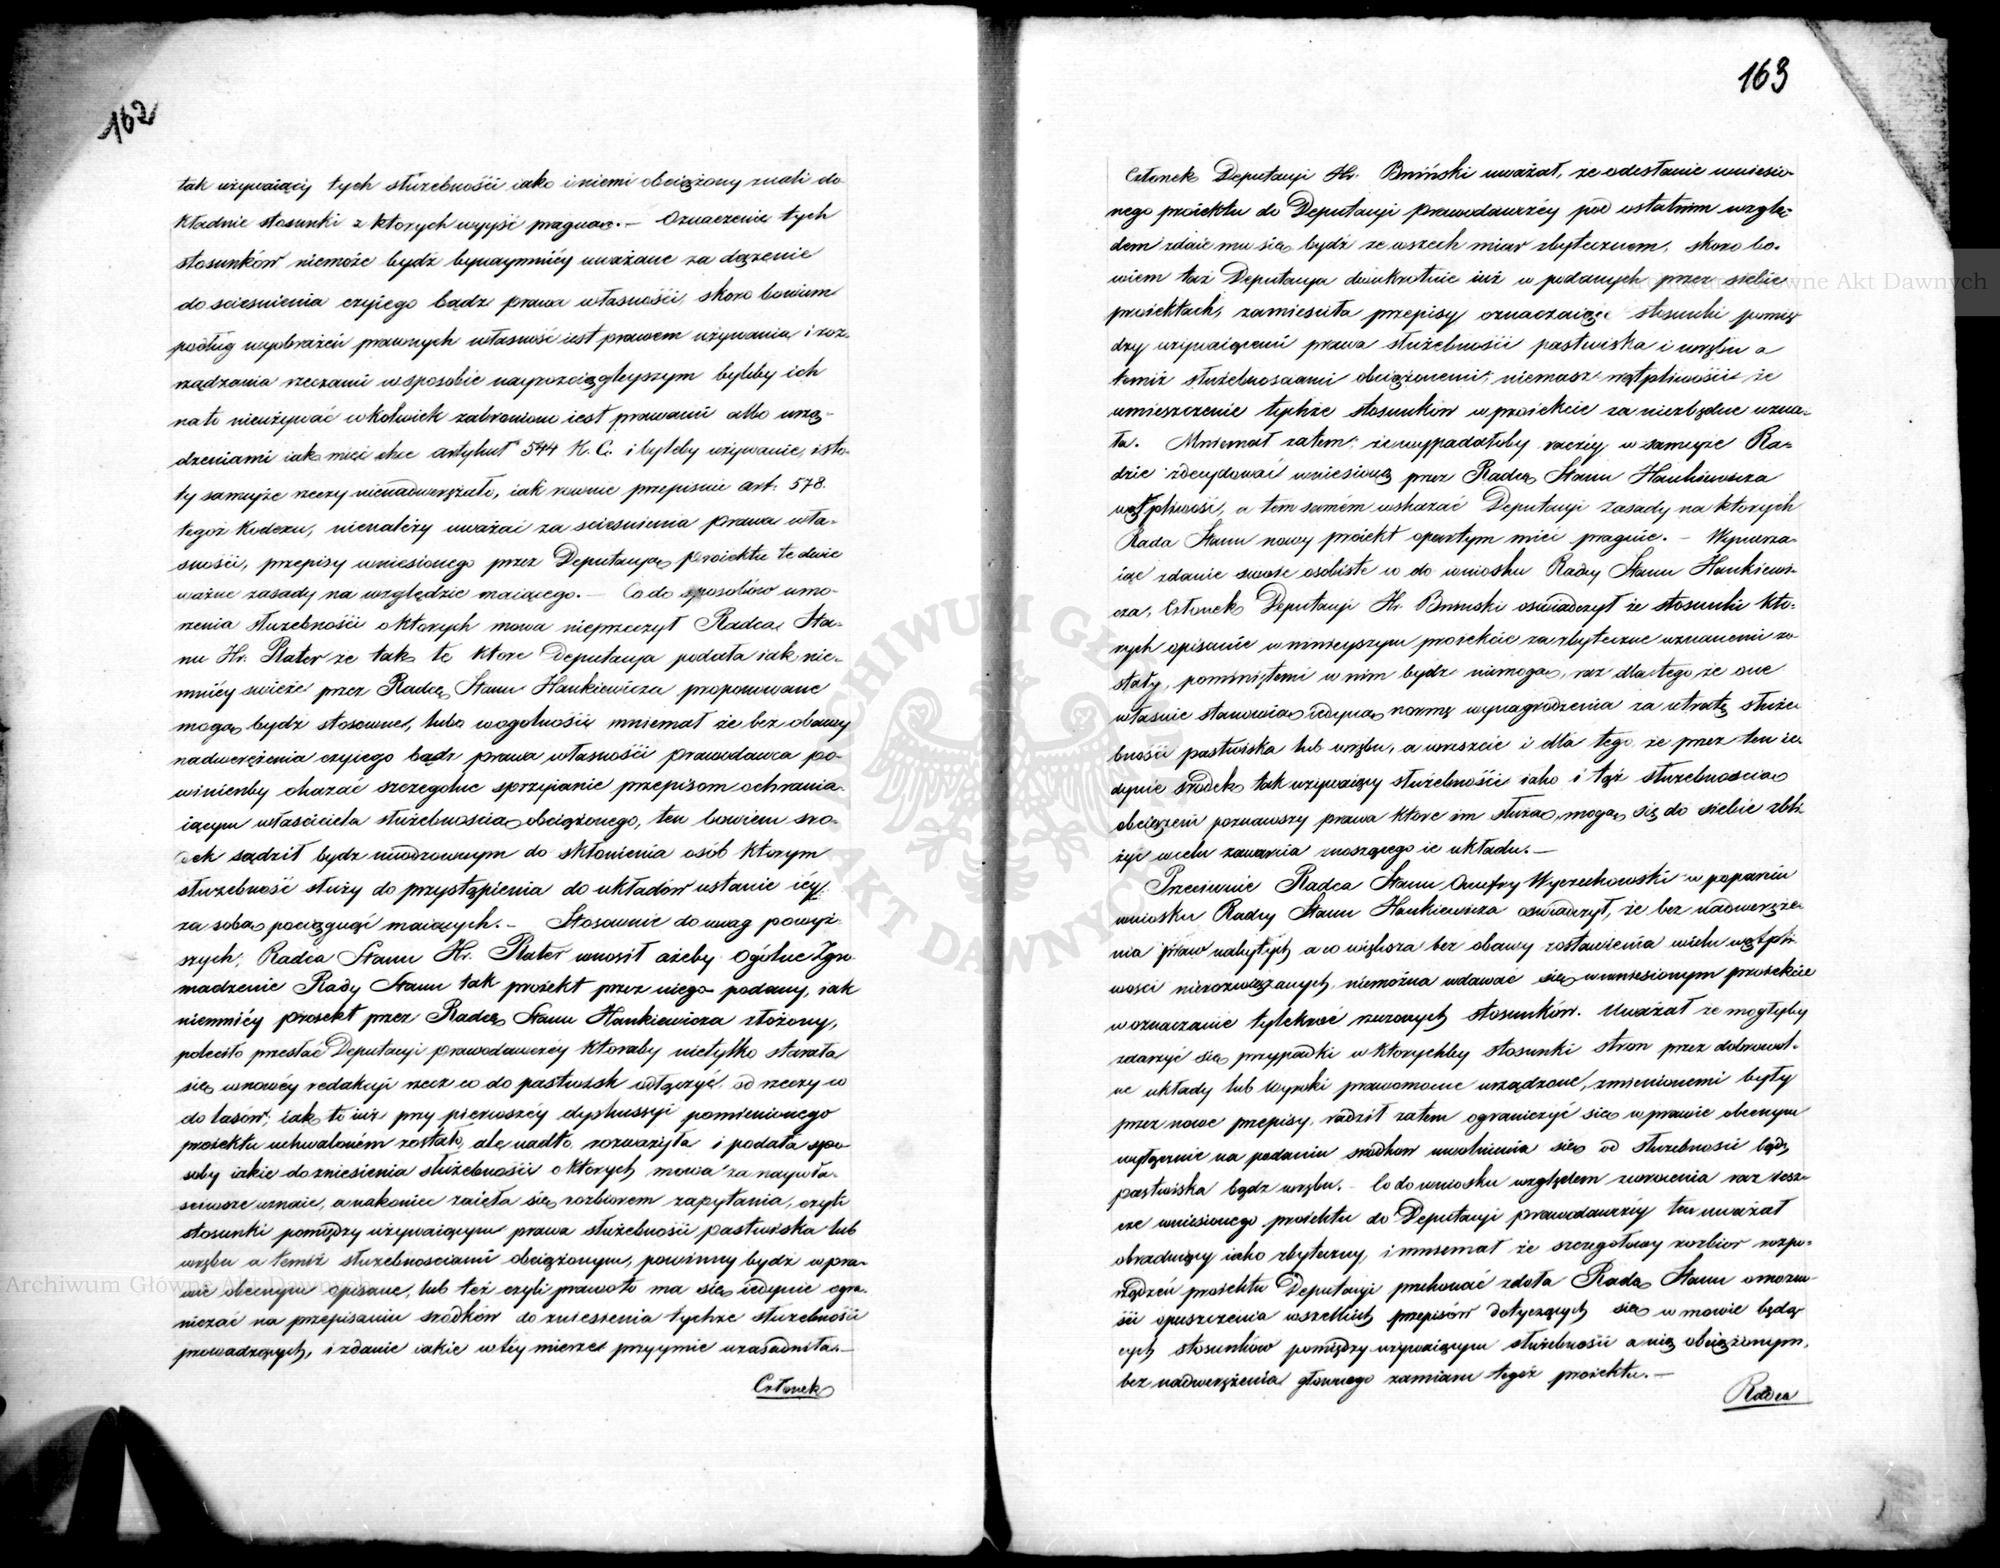 162
tak używaiący tych służebności iako i niemi obciążony znali do-
kładnie stosunki z których wyyść pragną. — Oznaczenie tych
stosunków niemoże bydź bynaymniéy uważane za dążenie
do ścieśnienia czyiego bądź prawa własności, skoro bowiem
podług wyobrażeń prawnych własność iest prawem używania i roz-
rządzania rzeczami w sposobie nayrozciągleyszym byleby ich
na to nieużywać cokolwiek zabronione iest prawami albo urzą-
dzeniami iak mieć chce artykuł 544 K. C. i byleby używanie, isto-
ty sameyże rzeczy nienadwerężało, iak równie przepisuie art. 578.
tegoż Kodexu, nienależy uważać za ścieśnienia prawa wła-
sności, przepisy wniesionego przez Deputacyą proiektu te dwie
ważne zasady na względzie maiącego. — Co do sposobów umo-
rzenia służebności o których mowa nieprzeczył Radca Sta-
nu Hr. Plater że tak te które Deputacya podała iak nie-
mniéy świeżo przez Radcę Stanu Hankiewicza proponowane
mogą bydź stosowne, lubo w ogólności mniemał że bez obawy
nadwerężenia czyiego bądź prawa własności prawodawca po-
winienby okazać szczególne sprzyianie przepisom ochrania-
iącym właściciela służebnością obciążonego, ten bowiem śro-
dek sądził bydź naodpownym do skłonienia osób którym
służebność służy do przystąpienia do układów ustanie iéy
za sobą pociągnąć maiących. — Stosownie do uwag powyż-
szych, Radca Stanu Hr. Plater wnosił ażeby Ogólne Zgro-
madzenie Rady Stanu tak proiekt przez niego podany, iak
niemniéy proiekt przez Radcę Stanu Hankiewicza złożony,
poleciło przesłać Deputacyi prawodawczéy któraby nietylko starała
się w nowéy redakcyi rzecz co do pastwisk odłączyć od rzeczy co
do lasów, iak to iuż przy pierwszéy dyskussyi pomienionego
proiektu uchwalonem zostało, ale nadto rozważyła i podała spo-
soby iakie do zniesienia służebności o których mowa za naywła-
ściwsze uznaie, a nakoniec zaięła się rozbiorem zapytania, czyli
stosunki pomiędzy używaiącym prawa służebności pastwiska lub
wrębu a temiż służebnościami obciążonym, powinny bydź w pra-
wie obecnym opisane, lub też czyli prawo to ma się iedynie ogra-
niczać na przepisaniu środków do zniesienia tychże służebności
prowadzących, i zdanie iakie w téy mierze przyymie uzasadniła.—
Członek
163
Członek Deputacyi Hr. Bniński uważał, że odesłanie wniesio-
nego proiektu do Deputacyi prawodawczéy pod ostatnim wzglę-
dem zdaie mu się bydź ze wszech miar zbytecznem, skoro bo-
wiem taż Deputacya dwukrotnie iuż w podanych przez siebie
proiektach, zamieściła przepisy oznaczaiące stosunki pomię-
dzy używaiącemi prawa służebności pastwiska i wrębu a
temiż służebnościami obciążonemi, niemasz wątpliwości że
umieszczenie tychże stosunków w proiekcie za niezbędne uzna-
ła. Mniemał zatem, że wypadałoby raczéy w sameyże Ra-
dzie zdecydować wniesioną przez Radcę Stanu Hankiewicza
wątpliwość, a tem samém wskazać Deputacyi zasady na których
Rada Stanu nowy proiekt opartym mieć pragnie. — Wynurza-
iąc zdanie swoie osobiste co do wniosku Radcy Stanu Hankiewi-
cza, Członek Deputacyi Hr. Bniński oświadczył że stosunki któ-
rych opisanie w ninieyszym proiekcie za zbyteczne uznanemi zo-
stały, pominiętemi w nim bydź niemogą, raz dla tego że one
właśnie stanowią iedyną normę wynagrodzenia za utratę służe-
bności pastwiska lub wrębu, a wreszcie i dla tego, że przez ten ie-
dynie środek tak używaiący służebności iako i tąż służebnością
obciążeni poznawszy prawa które im służą, mogą się do siebie zbli-
żyć w celu zawarcia znoszącego ie układu. —
Przeciwnie Radca Stanu Onufry Wyczechowski w poparciu
wniosku Radcy Stanu Hankiewicza oświadczył, że bez nadweręże-
nia praw nabytych, a co większa bez obawy zostawienia wielu wątpli-
wości nierozwiązanych, niemożna wdawać się w wniesionym proiekcie
w oznaczanie tylekroć rzeczonych stosunków. Uważał że mogłyby
zdarzyć się przypadki w którychby stosunki stron przez dobrowol-
ne układy lub wyroki prawomocne urządzone, zmienionemi były
przez nowe przepisy, radził zatem ograniczyć się w prawie obecnym
wyłącznie na podaniu środków uwolnienia się od służebności bądź
pastwiska bądź wrębu. — Co do wniosku względem zwrócenia raz iesz-
cze wniesionego proiektu do Deputacyi prawodawczéy ten uważał
obradujący iako zbyteczny, i mniemał że szczegółowy rozbiór rozpo-
rządzeń proiektu Deputacyi przekonać zdoła Radę Stanu o możno-
ści opuszczenia wszelkich przepisów dotyczących się w mowie będą-
cych stosunków pomiędzy używaiącym służebności a nią obciążonym,
bez nadwerężenia głównego zamiaru tegoż proiektu. —
Radca
Archiwum Główne Akt Dawnych
Archiwum Główne Akt Dawnych
ARCHIWUM GŁÓWNE AKT DAWNYCH